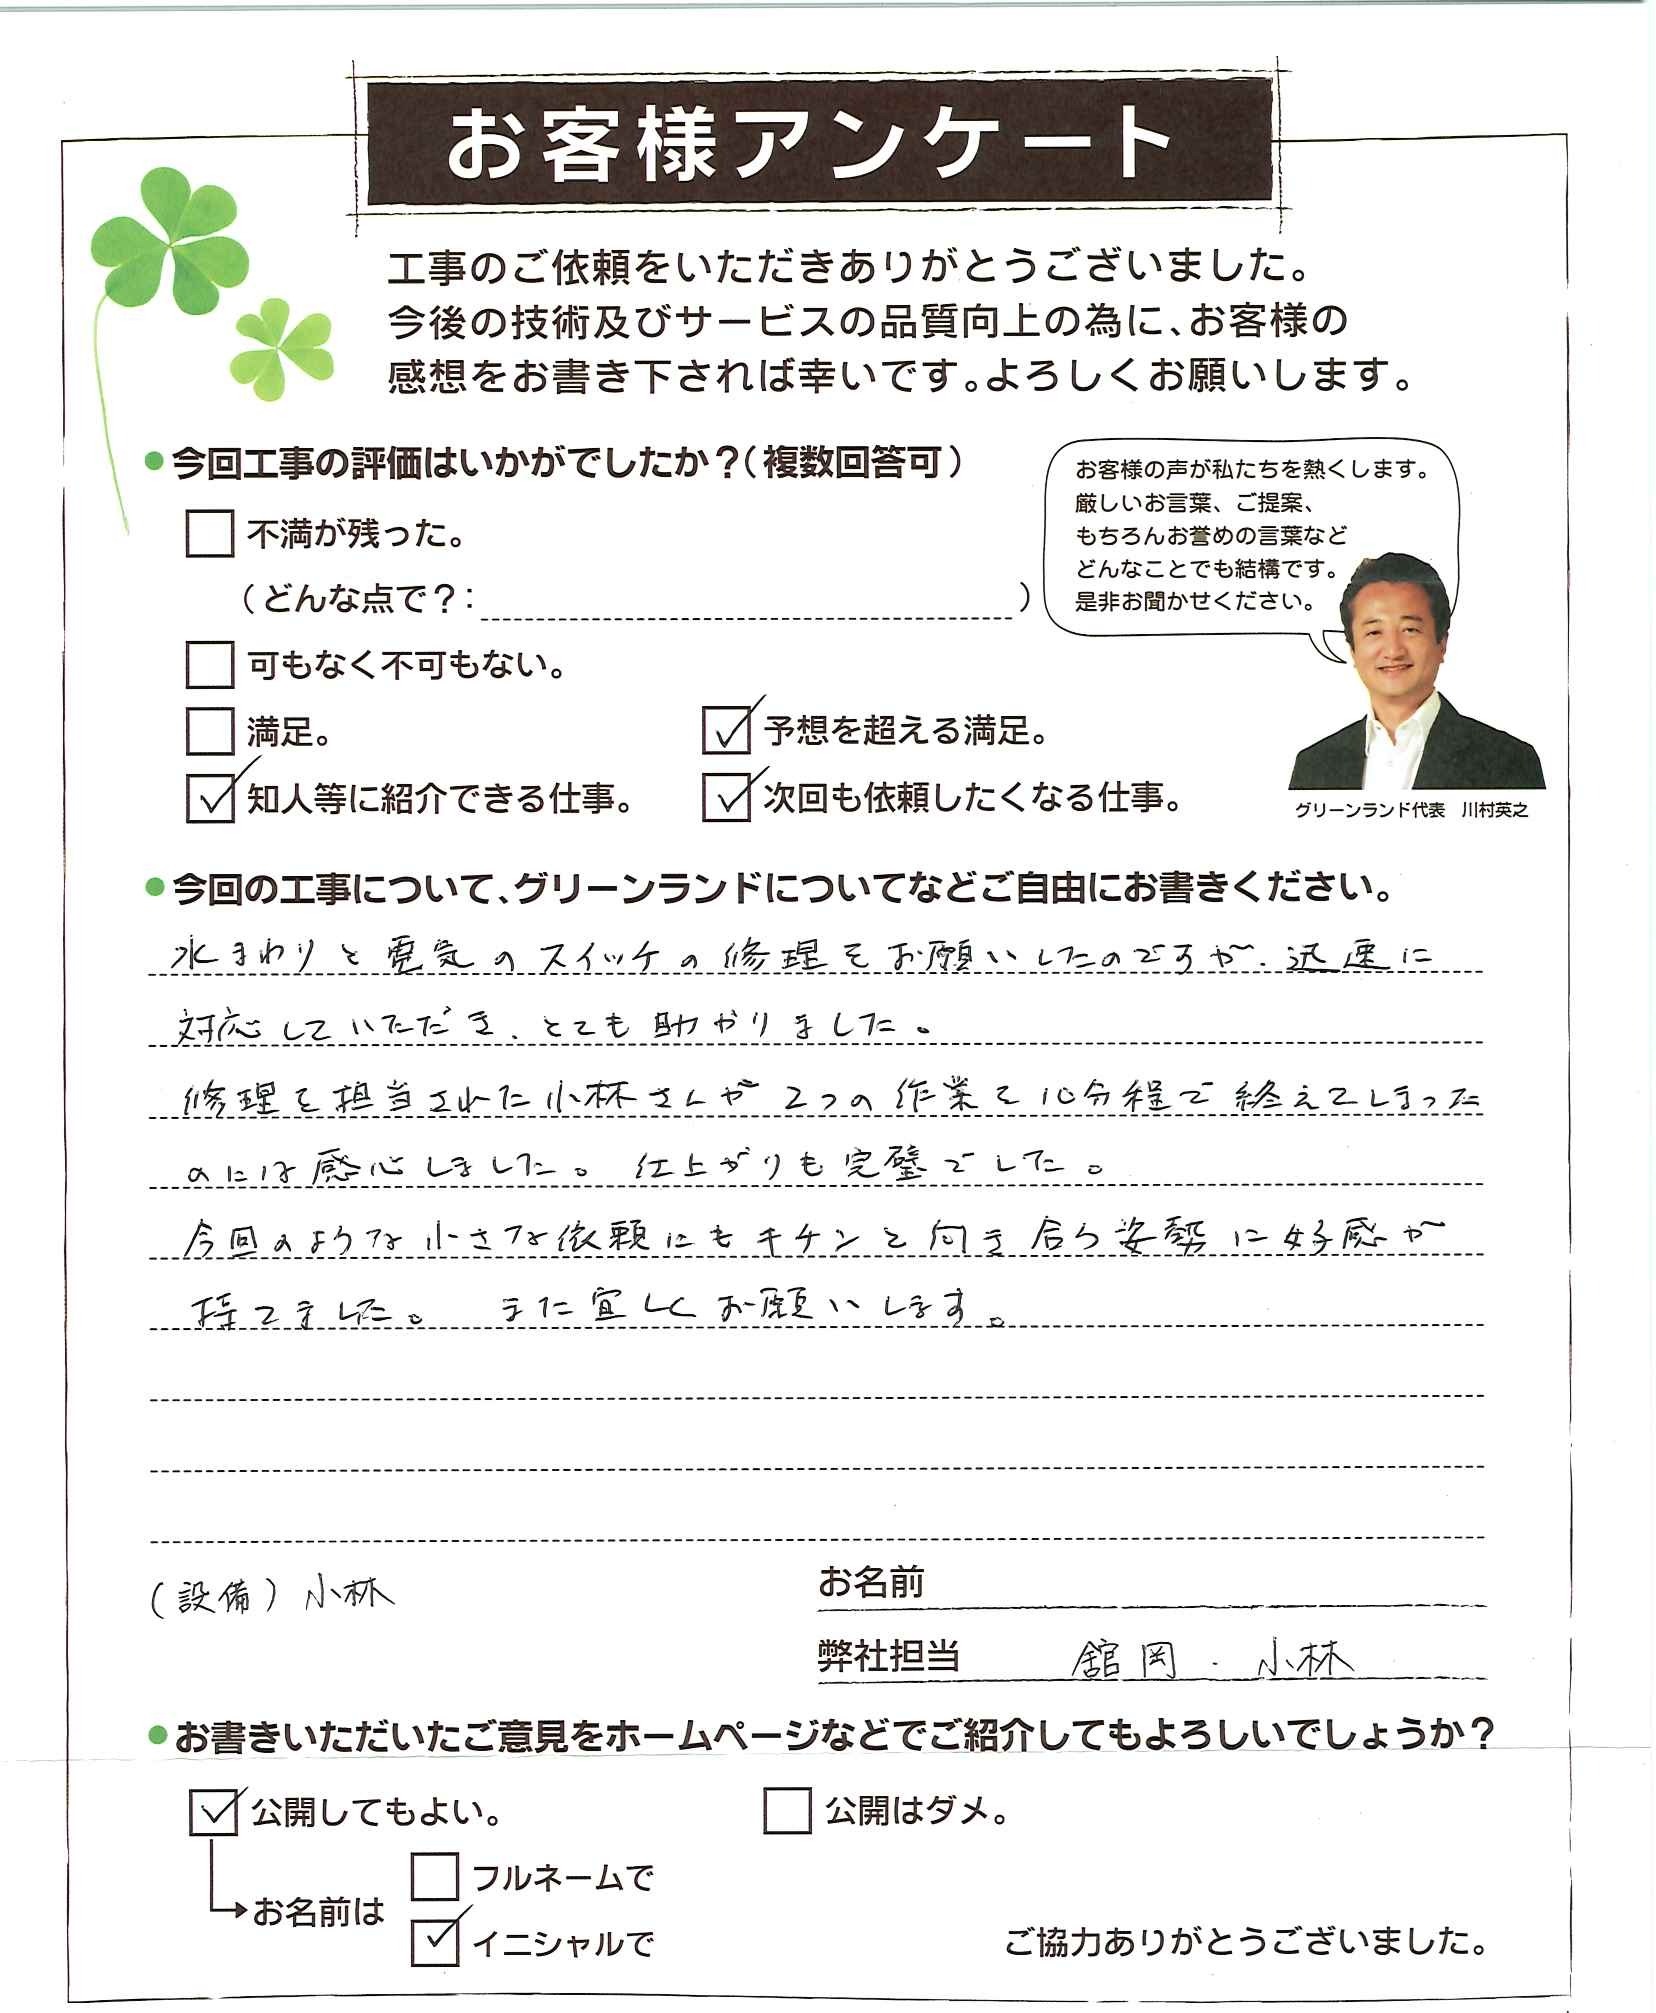 お客様アンケート
工事のご依頼をいただきありがとうございました。
今後の技術及びサービスの品質向上の為に、お客様の
感想をお書き下されば幸いです。よろしくお願いします。
●今回工事の評価はいかがでしたか？（複数回答可）
お客様の声が私たちを熱くします。
厳しいお言葉、ご提案、
もちろんお誉めの言葉など
どんなことでも結構です。
是非お聞かせください。
不満が残った。
（どんな点で？：）
可もなく不可もない。
満足。
予想を超える満足。
知人等に紹介できる仕事。
次回も依頼したくなる仕事。
グリーンランド代表 川村英之
●今回の工事について、グリーンランドについてなどご自由にお書きください。
水まわりと電気のスイッチの修理をお願いしたのですが、迅速に
対応していただき、とても助かりました。
修理を担当された小林さんが2つの作業を10分程で終えてしまった
のには感心しました。仕上がりも完璧でした。
今回のような小さな依頼にもキチンと向き合う姿勢に好感が
持てました。 また宜しくお願いします。
（設備）小林
お名前
弊社担当 舘岡・小林
●お書きいただいたご意見をホームページなどでご紹介してもよろしいでしょうか？
公開してもよい。
公開はダメ。
フルネームで
お名前は
イニシャルで
ご協力ありがとうございました。